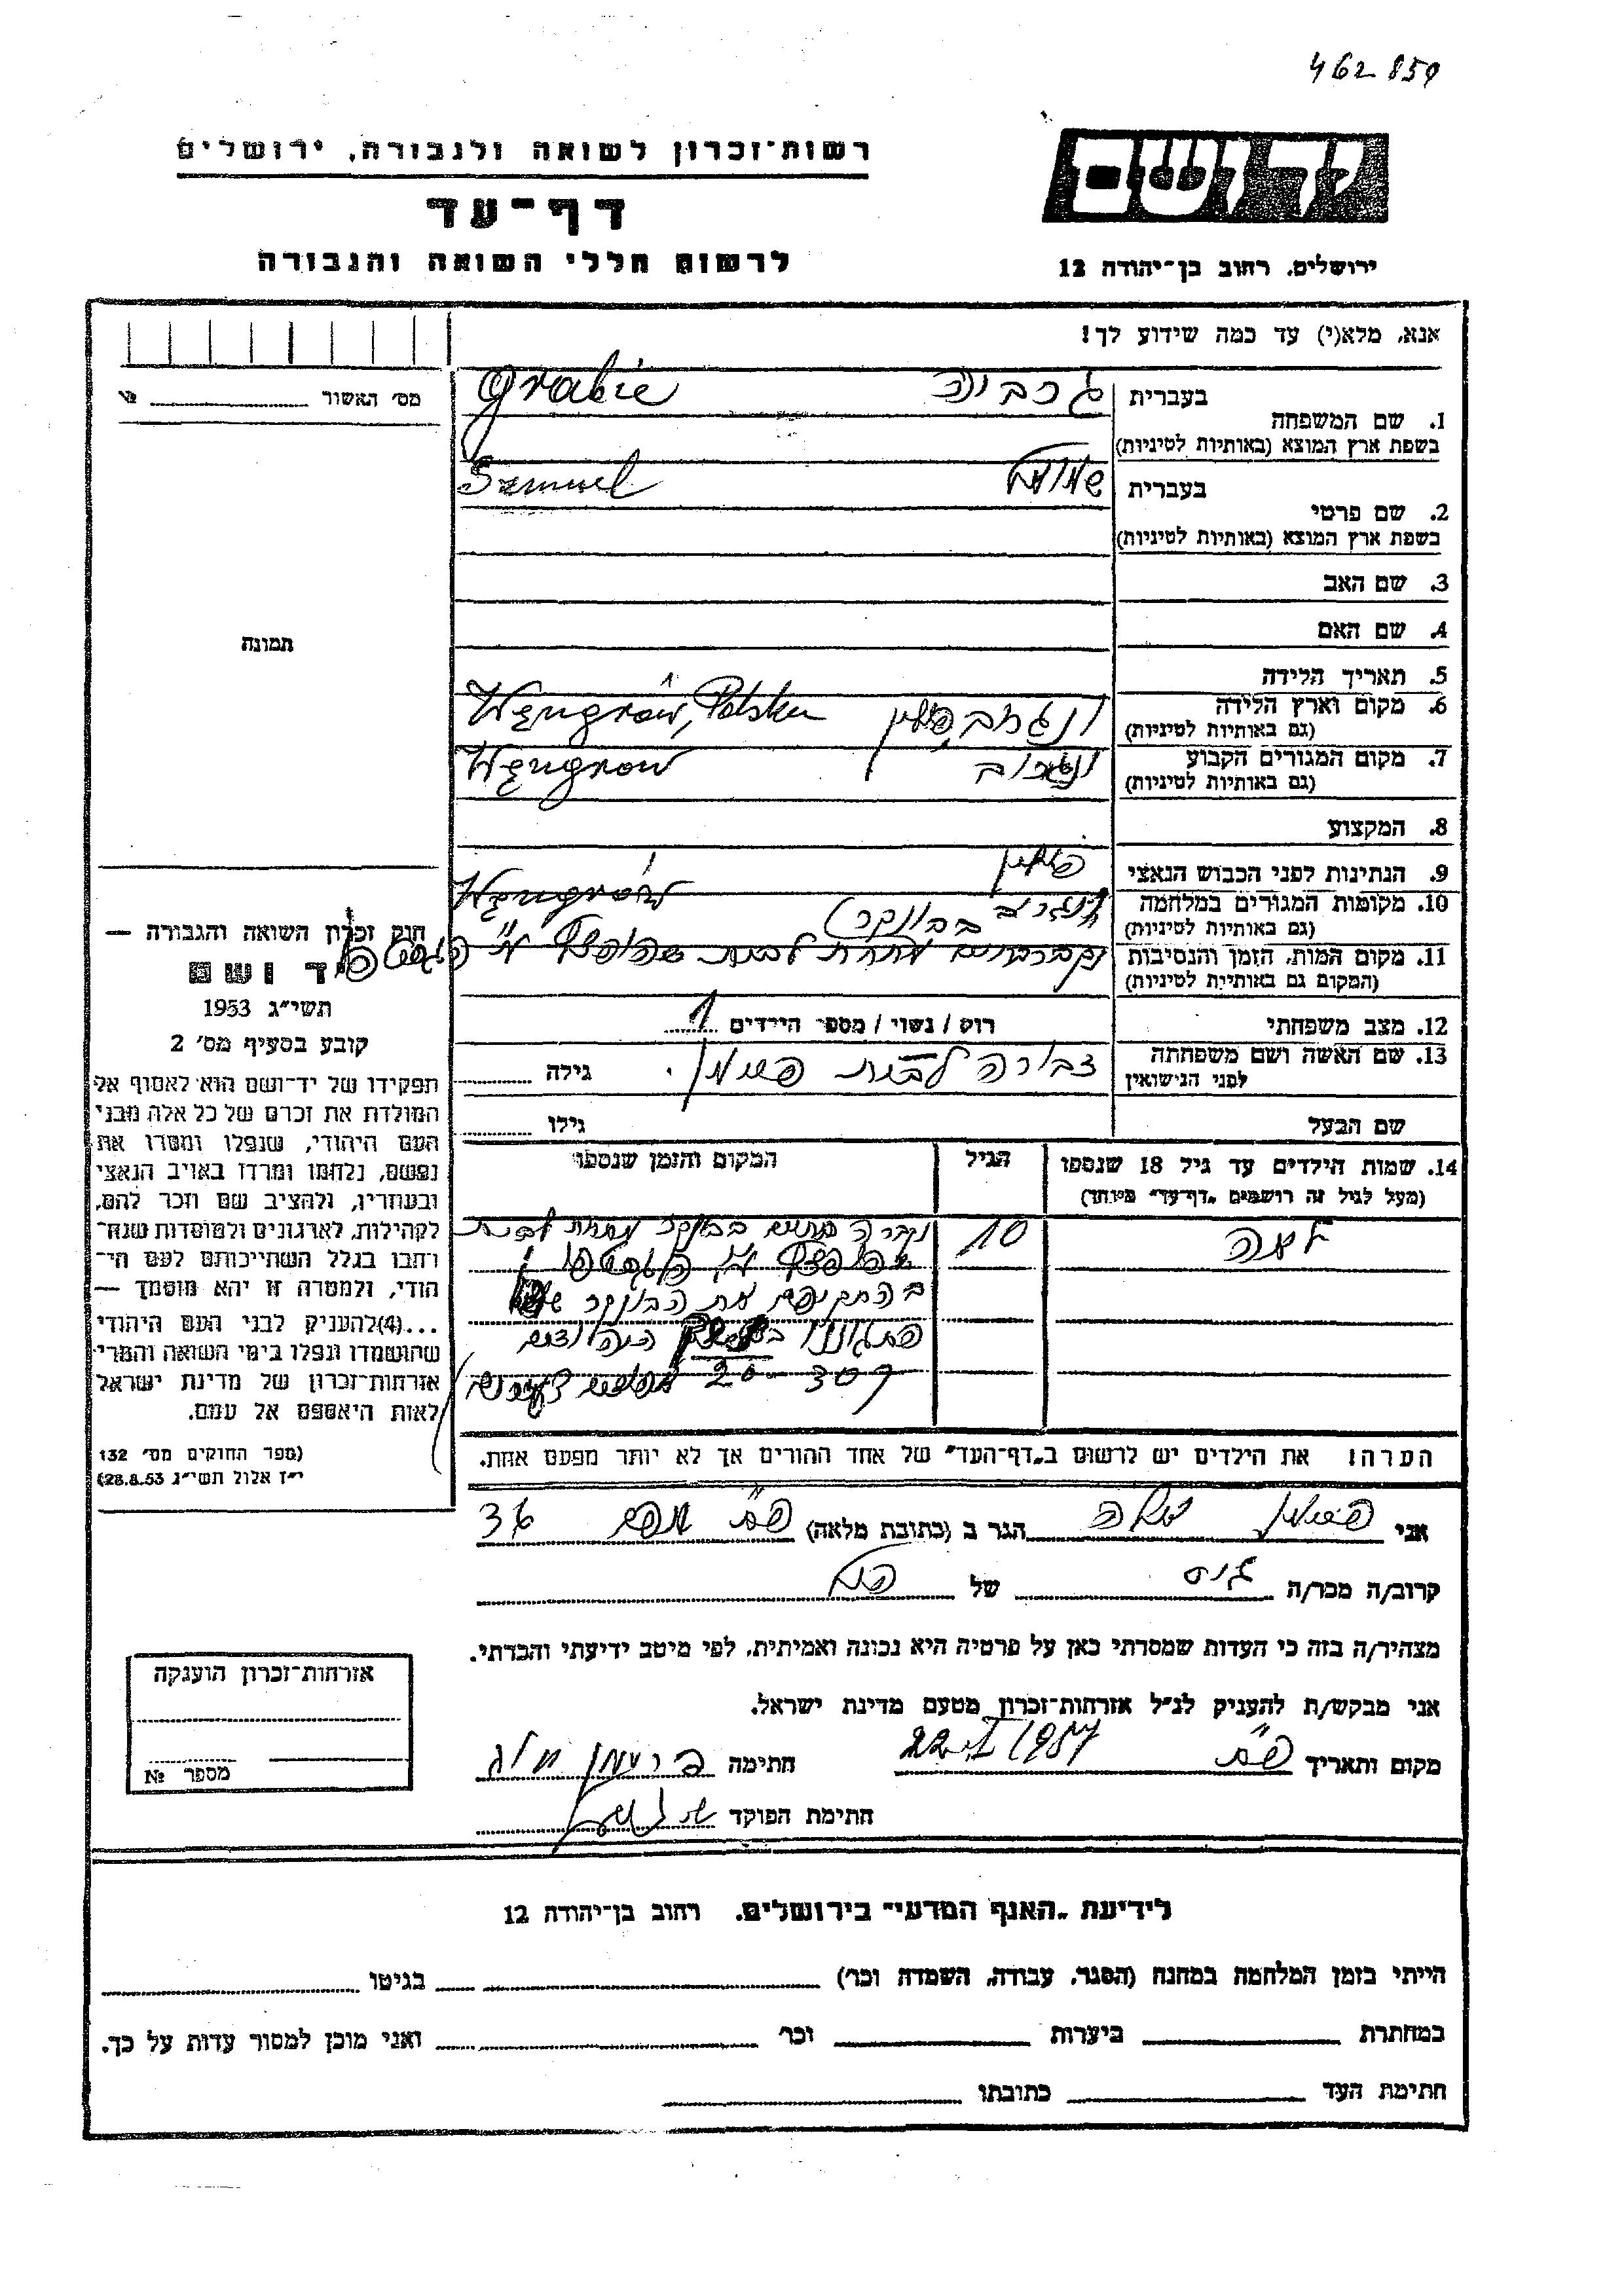 462859
יד ושם
רשות-זכרון לשואה ולגבורה, ירושלים
דף-עד
לרשום חללי השואה והגבורה
ירושלים, רחוב בן-יהודה 12
אנא, מלא(י) עד כמה שידוע לך!
מס' האשור № 
1. שם המשפחה
בעברית גרביה Grabie
בשפת ארץ המוצא (באותיות לטיניות)
2. שם פרטי
בעברית שמואל Samuel
בשפת ארץ המוצא (באותיות לטיניות)
3. שם האב
4. שם האם
5. תאריך הלידה
6. מקום וארץ הלידה ונגרוב, פולין Węngrów, Polska
(גם באותיות לטיניות)
7. מקום המגורים הקבוע ונגרוב Węngrow
(גם באותיות לטיניות)
8. המקצוע
9. הנתינות לפני הכבוש הנאצי פולין
10. מקומות המגורים במלחמה ונגרוב בבונקר Węngrów
(גם באותיות לטיניות)
11. מקום המות, הזמן והנסיבות נקברו חיים מתחת לבית שהופצץ ע"י הגסטפו
(המקום גם באותיות לטיניות)
12. מצב משפחתי רוק / נשוי / מספר הילדים 1
13. שם האשה ושם משפחתה דבורה לבית גילה
לפני הנישואין
שם הבעל גילו
14. שמות הילדים עד גיל 18 שנספו הגיל המקום והזמן שנספו
(מעל לגיל זה רושמים "דף-עד" מיוחד)
לאה 10 נקברה חיים בבונקר מתחת לבית
שהופצץ ע"י הגסטפו
בהתקיפם את הבונקר
התגוננו
20
הערה: את הילדים יש לרשום ב"דף-העד" של אחד ההורים אך לא יותר מפעם אחת.
תמונה
חוק זכרון השואה והגבורה —
יד ושם
תשי"ג 1953
קובע בסעיף מס' 2
תפקידו של יד-ושם הוא לאסוף אל
המולדת את זכרם של כל אלה מבני
העם היהודי, שנפלו ומסרו את
נפשם, נלחמו ומרדו באויב הנאצי
ובעוזריו, ולהציב שם וזכר להם,
לקהילות, לארגונים ולמוסדות שנח־
רבו בגלל השתייכותם לעם הי־
הודי, ולמטרה זו יהא מוסמך —
...(4)להעניק לבני העם היהודי
שהושמדו ונפלו בימי השואה והמרי
אזרחות-זכרון של מדינת ישראל
לאות היאספם אל עמם.
(ספר החוקים מס' 132
י"ז אלול תשי"ג 28.8.53)
אני הגר ב (כתובת מלאה) 36
קרוב/ה מכר/ה גיס של הנ"ל
מצהיר/ה בזה כי העדות שמסרתי כאן על פרטיה היא נכונה ואמיתית, לפי מיטב ידיעתי והכרתי.
אני מבקש/ת להעניק לנ"ל אזרחות-זכרון מטעם מדינת ישראל.
מקום ותאריך 1957 חתימה
חתימת הפוקד
אזרחות-זכרון הוענקה
מספר №
לידיעת "האגף המדעי" בירושלים, רחוב בן-יהודה 12
הייתי בזמן המלחמה במחנה (הסגר, עבודה, השמדה וכר') בגיטו
במחתרת ביערות וכר' ואני מוכן למסור עדות על כך.
חתימת העד כתובתו